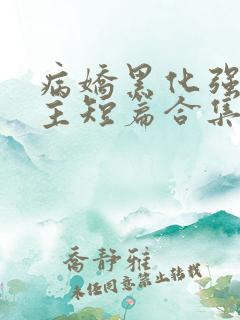 病嬌黑化强
主短篇合集
喬靜雅
未经同意禁止转载